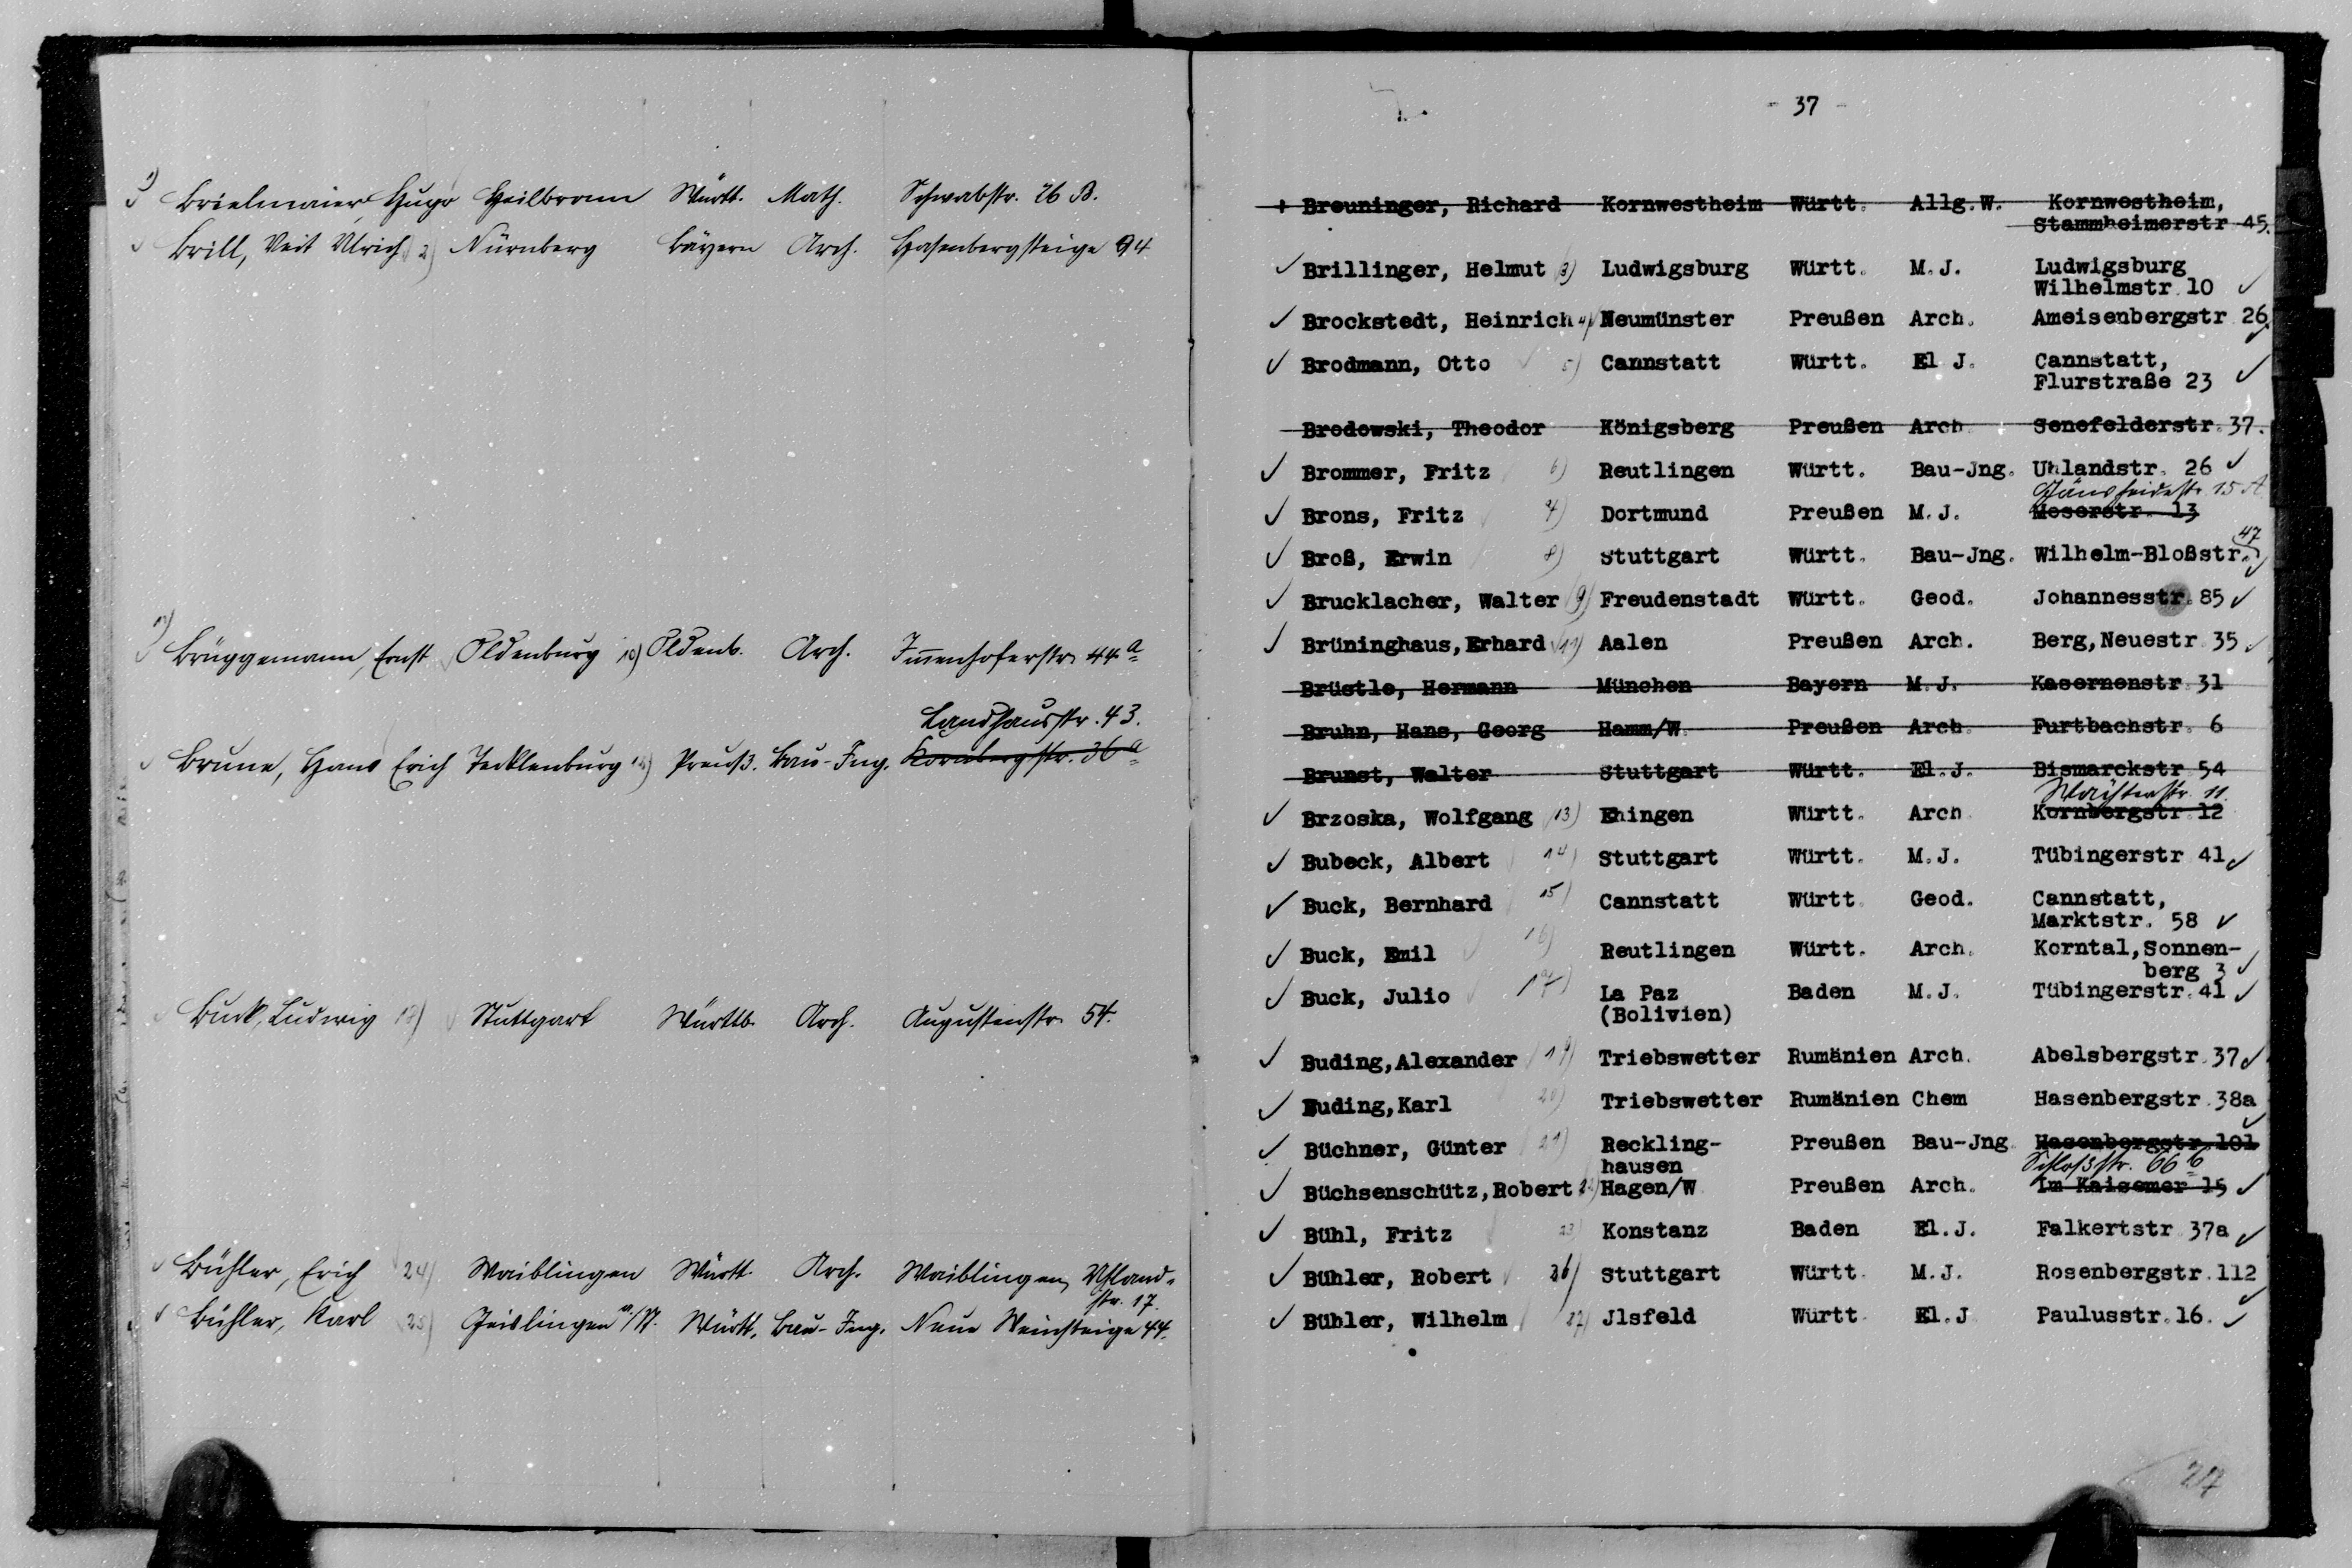 1) Brielmaier Hugo Heilbronn Württ. Math. Schwabstr. 26 B.
Brill, Veit Ulrich 2) Nürnberg Bayern Arch. Hasenbergsteige 94
Brüggemann, Ernst Oldenburg 10) Oldenb. Arch. Immenhoferstr. 44 a
Landhausstr. 43.
Brune, Hans Erich Tecklenburg 12) Preuß. Bau-Ing. Kornbergstr. 36 a
Buck, Ludwig 18) Stuttgart Württb. Arch. Augustenstr. 54.
Bühler, Erich 24) Waiblingen Württ. Arch. Waiblingen, Uhland-
str. 17.
Bühler, Karl 25) Geislingen Württ. Bau-Ing. Neue Weinsteige 44.
- 37 -
+ Breuninger, Richard Kornwestheim Württ. Allg.W. Kornwestheim,
Stammheimerstr 45.
✓ Brillinger, Helmut 3) Ludwigsburg Württ. M.J. Ludwigsburg
Wilhelmstr.10 ✓
✓ Brockstedt, Heinrich 4) Neumünster Preußen Arch. Ameisenbergstr 26. ✓
✓ Brodmann, Otto ✓ 5) Cannstatt Württ. El J. Cannstatt,
Flurstraße 23 ✓
Brodowski, Theodor Königsberg Preußen Arch. Senefelderstr.37.
✓ Brommer, Fritz 6) Reutlingen Württ. Bau-Jng. Uhlandstr. 26 ✓
Gänsheidestr. 15 A
✓ Brons, Fritz 7) Dortmund Preußen M.J. Moserstr. 13
47
✓ Broß, Erwin 8) Stuttgart Württ. Bau-Jng. Wilhelm-Bloßstr. ✓
✓ Brucklacher, Walter 9) Freudenstadt Württ. Geod. Johannesstr.85 ✓
✓ Brüninghaus,Erhard ✓ 11) Aalen Preußen Arch. Berg,Neuestr 35 ✓
Brüstle, Hermann München Bayern M.J. Kasernenstr.31
Bruhn, Hans, Georg Hamm/W. Preußen Arch. Furtbachstr. 6
Brunst, Walter Stuttgart Württ. El.J. Bismarckstr 54
Wächterstr. 11.
✓ Brzoska, Wolfgang 13) Ehingen Württ. Arch Kornbergstr.12
✓ Bubeck, Albert 14) Stuttgart Württ. M.J. Tübingerstr 41 ✓
✓ Buck, Bernhard 15) Cannstatt Württ. Geod. Cannstatt,
Marktstr. 58 ✓
✓ Buck, Emil ✓ 16) Reutlingen Württ. Arch. Korntal,Sonnen-
berg 3 ✓
✓ Buck, Julio ✓ 17) La Paz Baden M.J. Tübingerstr.41 ✓
(Bolivien)
✓ Buding,Alexander 19) Triebswetter Rumänien Arch. Abelsbergstr.37 ✓
✓ Buding,Karl 20) Triebswetter Rumänien Chem Hasenbergstr.38a ✓
✓ Büchner, Günter 21) Reckling- Preußen Bau-Jng. Hasenbergstr.101
hausen Schloßstr. 66 b
✓ Büchsenschütz,Robert 22) Hagen/W. Preußen Arch. Im Kaisemer 15 ✓
✓ Bühl, Fritz 23) Konstanz Baden El.J. Falkertstr 37a ✓
✓ Bühler, Robert ✓ 26) Stuttgart Württ. M.J. Rosenbergstr.112 ✓
✓ Bühler, Wilhelm 27) Jlsfeld Württ. El.J. Paulusstr.16. ✓
27